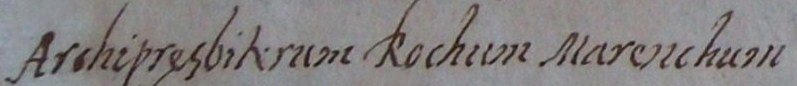 Archipręsbiterum Rochum Marenchum